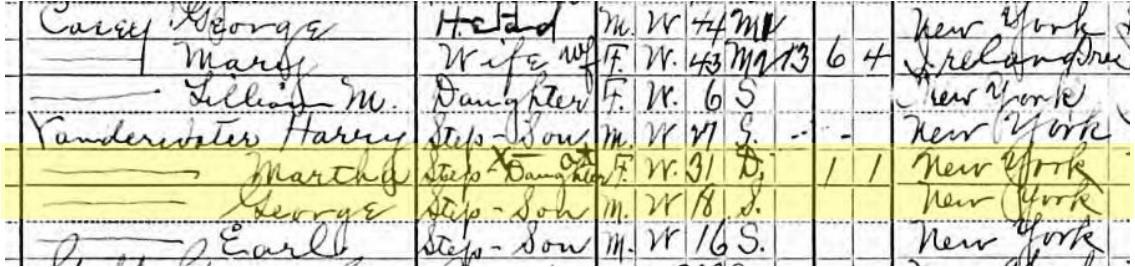 Casey George Head M. W 44 M1 New York
—— Mary Wife wf F. W. 43 M2 13 6 4 Ireland
—— Lillian M. Daughter F. W. 6 S New York
Vanderwater Harry Step-Son M. W 27 S. New York
—— Martha Step-Daughter F. W. 31 D. 1 1 New York
—— George Step-Son M. W 18 S. New York
—— Earl Step-Son M. W 16 S. New York